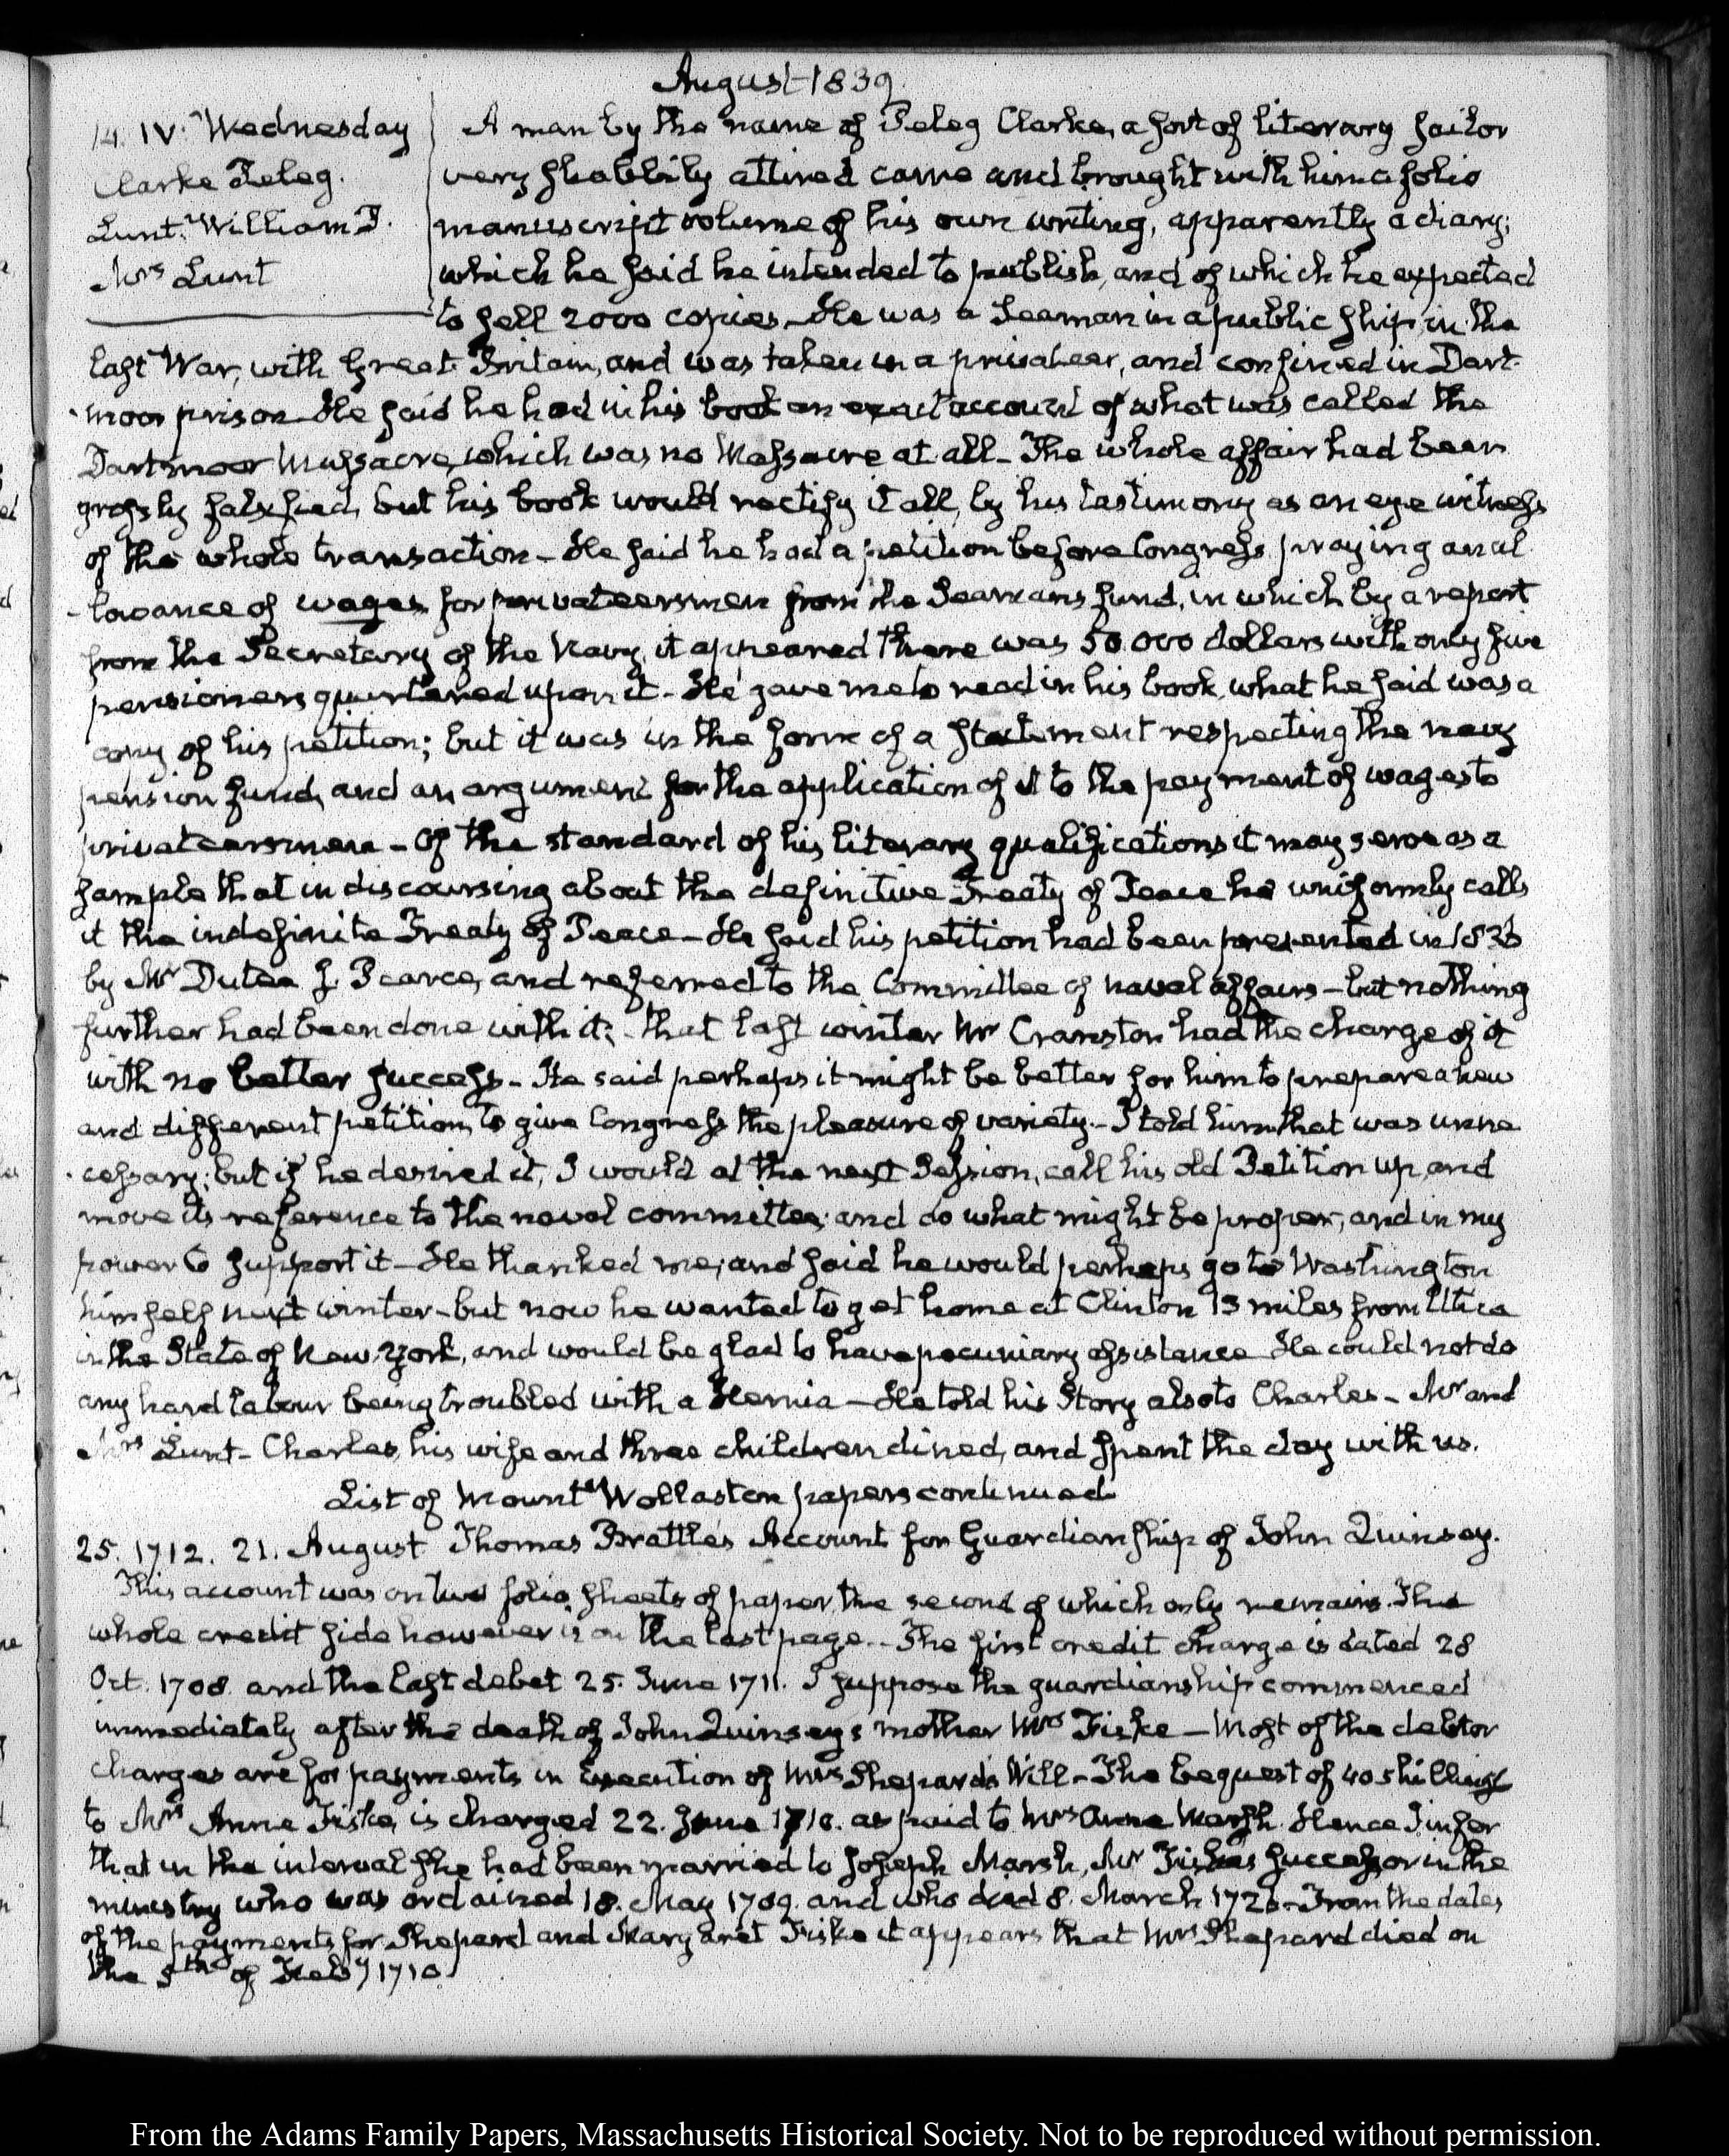 August 1839.
14. IV. Wednesday
Clarke Peleg.
Lunt. William P.
Mrs Lunt
A man by the name of Peleg Clarke, a sort of literary sailor
very shabbily attired came and brought with him a folio
manuscript volume of his own writing, apparently a diary;
which he said he intended to publish, and of which he expected
to sell 2000 copies. He was a Seaman in a public ship, in the
last War, with Great Britain, and was taken in a privateer, and confined in Dart-
-moor prison. He said he had in his book an exact account of what was called the
Dartmoor Massacre, which was no Massacre at all — The whole affair had been
grossly falsified, but his book would rectify it all, by his testimony as an eye witness
of the whole transaction — He said he had a petition before Congress, praying an al
-lowance of wages for privateersmen from the Seamans fund, in which by a report
from the Secretary of the Navy, it appeared there was 50,000 dollars with only five
pensioners quartered upon it — He gave me to read in his book, what he said was a
copy of his petition; but it was in the form of a statement respecting the navy
pension fund, and an argument for the application of it to the payment of wages to
privateersmen — Of the standard of his literary qualifications it may serve as a
sample that in discoursing about the definitive Treaty of Peace he uniformly calls
it the indefinite Treaty of Peace — He said his petition had been presented in
by Mr Dutee J. Pearce, and referred to the Committee of naval affairs — but nothing
further had been done with it; that last winter Mr Cranston had the charge of it
with no better success — He said perhaps it might be better for him to prepare a new
and different petition, to give Congress the pleasure of variety — I told him that was unne
-cessary; but if he desired it, I would at the next Session, call his old Petition up, and
move its reference to the naval committee; and do what might be proper, and in my
power to support it — He thanked me; and said he would perhaps go to Washington
himself next winter — but now he wanted to get home at Clinton 13 miles from Utica
in the State of New York, and would be glad to have pecuniary assistance He could not do
any hard labour being troubled with a Hernia — He told his Story also to Charles — Mr and
Mrs Lunt — Charles, his wife and three children dined, and spent the day with us.
List of Mount Wollaston papers continued
25. 1712. 21. August Thomas Brattle's Account for Guardianship of John Quinsey.
This account was on two folio sheets of paper, the second of which only remains. The
whole credit side however is on the last page. — The first credit charge is dated 28
Oct. 1708. and the last debet 25. June 1711. I suppose the guardianship commenced
immediately after the death of John Quinseys mother Mrs Fiske — Most of the debtor
charges are for payments in execution of Mrs Shepard's Will — The bequest of 40 shillings
to Mrs Anne Fiske, is charged 22. June 1710. as paid to Mrs Anne Marsh. Hence I infer
that in the interval she had been married to Joseph Marsh, Mr Fiskes successor in the
ministry who was ordained 18. May 1709. and who died 8. March — From the dates
of the payments for Shepard and Margaret Fiske it appears that Mrs Shepard died on
the 5th of Feby 1710.
From the Adams Family Papers, Massachusetts Historical Society. Not to be reproduced without permission.